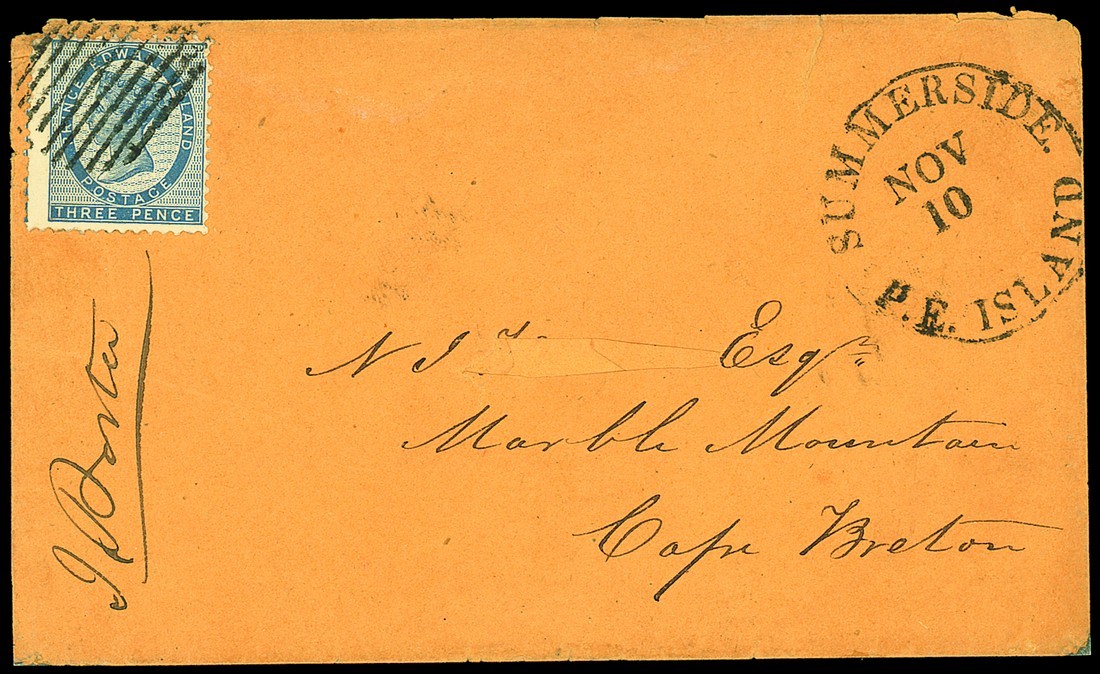 PRINCE EDWARD ISLAND
POSTAGE
THREE PENCE
SUMMERSIDE.
NOV
10
P.E. ISLAND
N J Esqr
Marble Mountain
Cape Breton